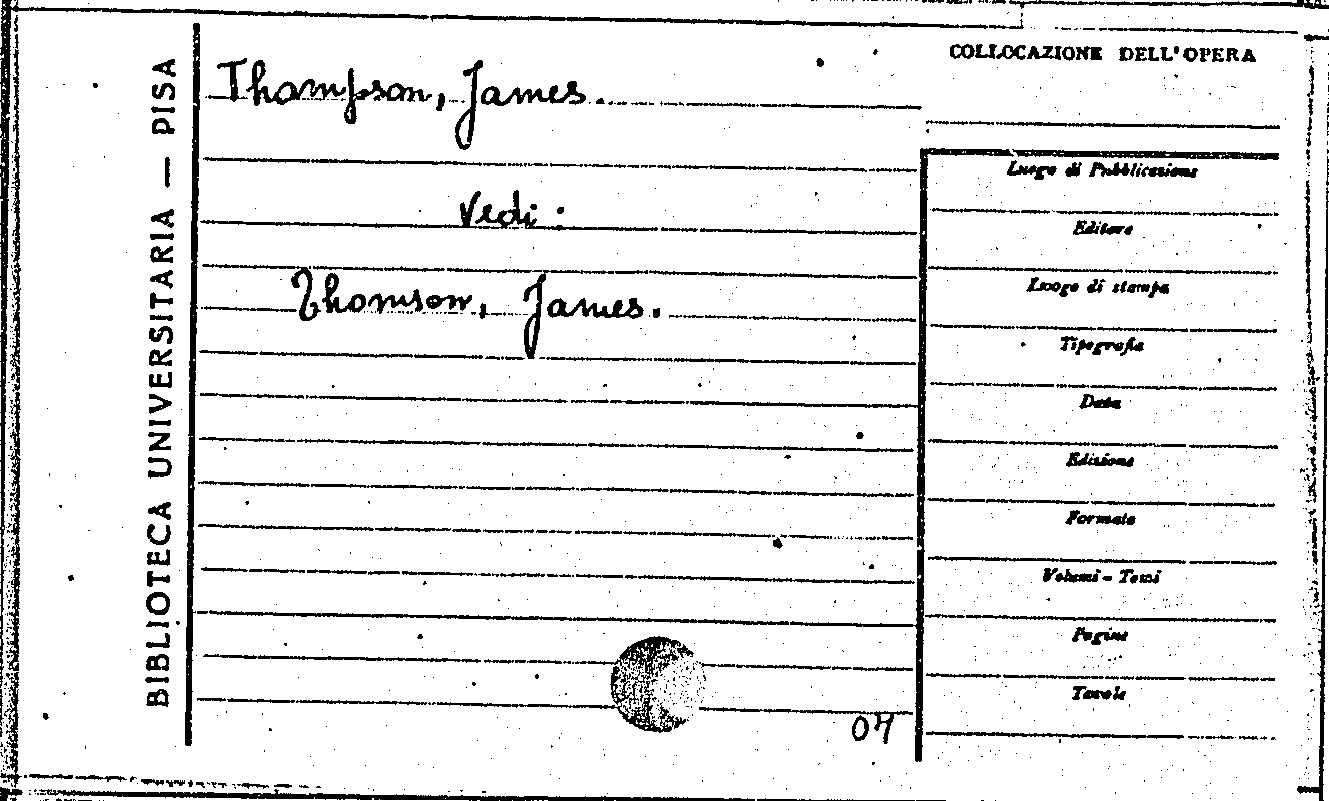 BIBLIOTECA UNIVERSITARIA — PISA
Thompson, James.
Vedi:
Thomson, James.
07
COLLOCAZIONE DELL'OPERA
Luogo di Pubblicazione
Editore
Luogo di stampa
Tipografia
Data
Edizione
Formato
Volumi - Tomi
Pagine
Tavole